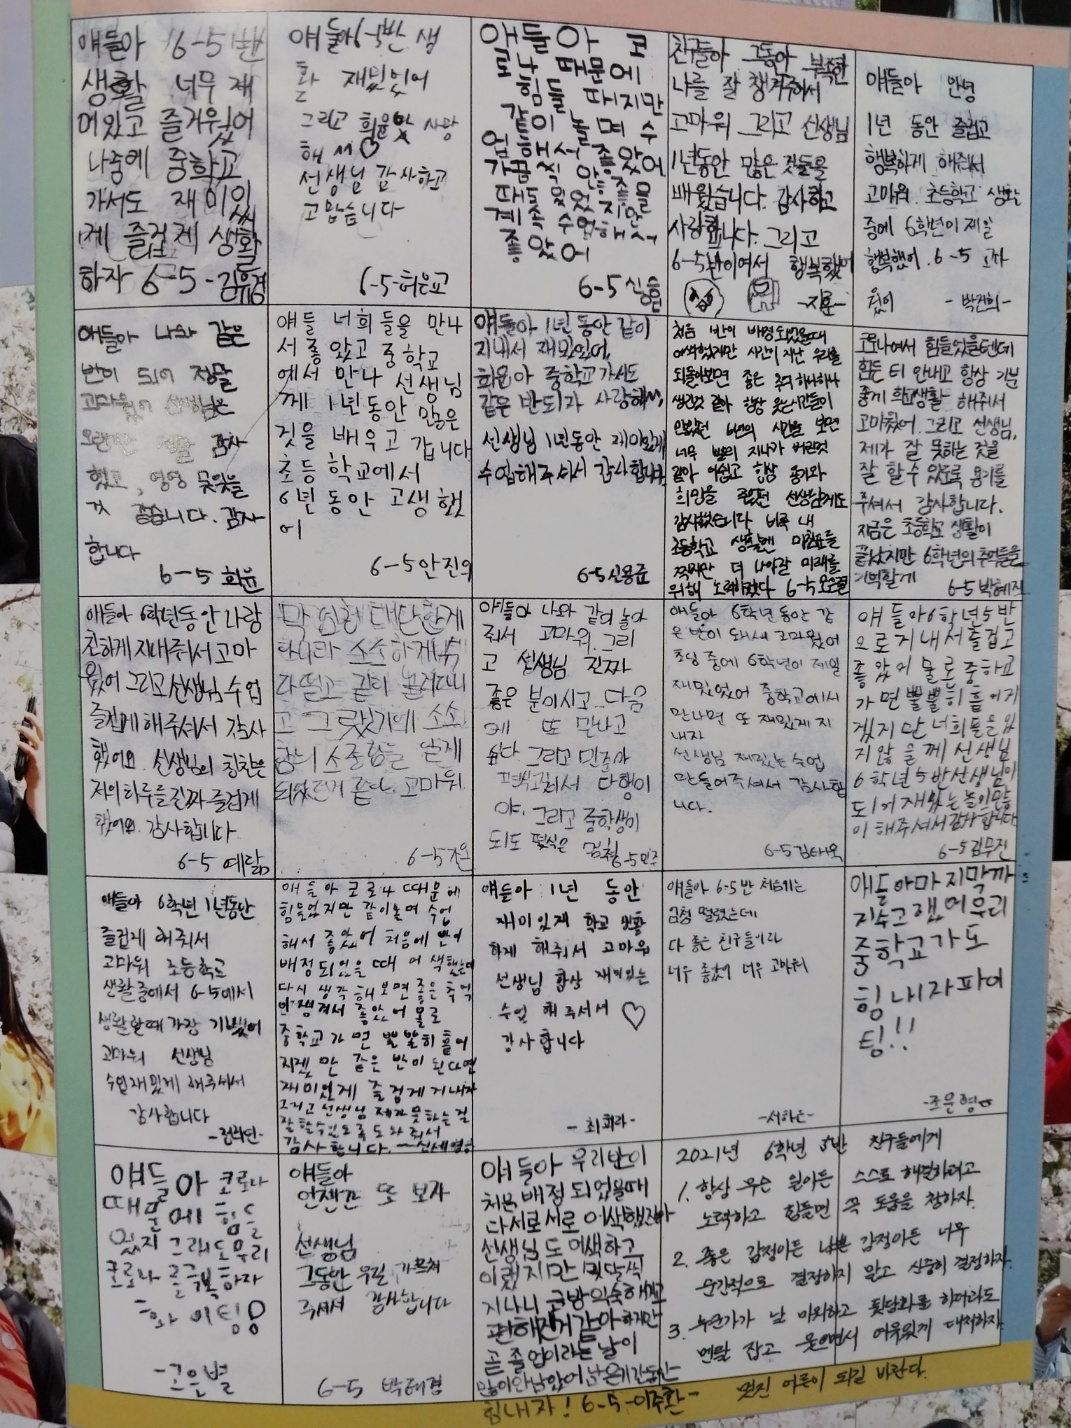 얘들아 6-5반
생활 너무 재
미있고 즐거웠어
나중에 중학교
가서도 재미있
게 즐겁게 생활
하자 6-5 -김유경
얘들아 6-5반 생
활 재밌었어
그리고 희윤 사랑
해♡
선생님 감사하고
고맙습니다
6-5-허윤교
얘들아 코
로나 때문에
힘들 때지만
같이 놀며 수
업해서 좋았어
가끔씩 안좋을
때도 있었지만
계속 수업해서
좋았어
6-5
친구들아 그동안 부족한
나를 잘 챙겨줘서
고마워 그리고 선생님
1년동안 많은 것들을
배웠습니다. 감사하고
사랑합
니다. 그리고
6-5반이여서 행복했어
얘들아 안녕
1년 동안 즐겁고
행복하게 해줘서
고마워. 초등학교 생활
중에 6학년이 제일
행복했어. 6-5 고마
웠어 -박진희-
얘들아 나와 같은
반이 되어 정말
고마웠어 선생님은
감사
했고, 영영 못잊을
것 같습니다. 감사
합니다
6-5 희윤
얘들 너희들을 만나
서 좋았고 중학교
에서 만나 선생님
께 1년동안 많은
것을 배우고 갑니다
초등학교에서
6년 동안 고생했
어
6-5안진우
얘들아 1년 동안 같이
지내서 재밌었어,
희윤아 중학교가서도
같은 반되자 사랑해
선생님 1년동안 재미있게
수업해주셔서 감사합니다
6-5신용준
처음 반이 배정되었을때
어색했지만 시간이 지난 우리를
되돌아보면 좋은 추억 하나하나
생긴것 같아 항상 웃는
너무 빨리 지나가 버린것
같아 아쉽고 항상 용기와
희망을 주셨던 선생님께도
감사했습니다 비록 내
초등학교 생활엔 마침표를
찍지만 더 나아갈 미래를
위해 노력하겠다
코로나여서 힘들었을텐데
힘든 티 안내고 항상 기분
좋게 학교생활 해줘서
고마웠어. 그리고 선생님,
제가 잘 못하는 것을
잘 할수 있도록 용기를
주셔서 감사합니다.
지금은 초등학교 생활이
끝났지만 6학년의 추억들을
기억할게 6-5 박혜진
얘들아 6학년동안 나랑
친하게 지내줘서 고마
웠어 그리고 선생님 수업
즐겁게 해주셔서 감사
했어요. 선생님의 칭찬은
저의 하루를 진짜 즐겁게
했어요. 감사합니다
6-5 예람
막 엄청 대단한게
아니라 소소하게 수
다떨고 같이 놀러다니
고 그랬기에 소소
함의 소중함을 알게
되었던거 같아. 고마워
얘들아 나와 같이 놀아
줘서 고마워. 그리
고 선생님 진짜
좋은 분이시고 다음
에 또 만나고
싶다. 그리고 민준아
야. 그리고 중학생이
얘들아 6학년동안 같
은 반이 돼서 고마웠어
초딩 중에 6학년이 제일
재밌었어 중학교에서
만나면 또 재밌게 지
내자
선생님 재밌는 수업
만들어주셔서 감사합
니다.
6-5김태욱
얘들아6학년5반
으로 지내서 즐겁고
좋았어 물론 중학교
가면 뿔뿔히 흩어지
겠지만 너희들을 잊
지않을께 선생님
6학년5반선생님이
되어 재밌는 놀이많
이 해주셔서감사합니다
6-5김무진
얘들아 6학년 1년동안
즐겁게 해줘서
고마워 초등학교
생활중에서 6-5에서
생활할때 가장 기뻤어
고마워 선생님
수업재밌게 해주셔서
감사합니다
얘들아 코로나 때문에
힘들었지만 같이놀며 수업
해서 좋았어 처음에 반이
배정되었을 때 어색했는데
다시 생각해보면 좋은 추억
만 생겨서 좋았어 물론
중학교가면 뿔뿔히 흩어
지겠지만 같은 반이 된다면
재미있게 즐겁게 지내자
그리고 선생님 제가 못하는걸
잘할수있도록 도와줘서
감사합니다.
얘들아 1년 동안
재미있게 학교 생활
하게 해줘서 고마워
선생님 항상 재미있는
수업 해주셔서 ♡
감사합니다
얘들아 6-5반 처음에는
엄청 떨렸는데
다 좋은 친구들이라
너무 좋았어 너무 고마워
-서하은-
얘들아마지막까
지수고했어우리
중학교가도
힘내자파이
팅!!
-조은형
얘들아 코로나
때문에 힘들
었지 그래도우리
코로나 를극복하자
화이팅
-고은별
얘들아
언젠간 또 보자
선생님
그동안 우릴 가르쳐
주셔서 감사합니다
6-5 박태겸
얘들아 우리반이
처음 배정 되었을때
다서로서로 어색했잖아
선생님도 어색하고
이랬지만 몇달씩
지나니 금방익숙해지고
편해진거 같아 하지만
곧 졸업이라는 날이
힘내자! 6-5-이주환-
2021년 6학년 5반 친구들에게
1. 항상 무슨 일이든 스스로 해결하려고
노력하고 힘들면 꼭 도움을 청하자.
2. 좋은 감정이든 나쁜 감정이든 너무
순간적으로 결정하지 말고 신중히 결정하자.
3. 누군가가 날 미워하고 뒷담화를 하더라도
멘탈 잡고 웃으면서 여유있게 대처하자.
멋진 어른이 되길 바란다.